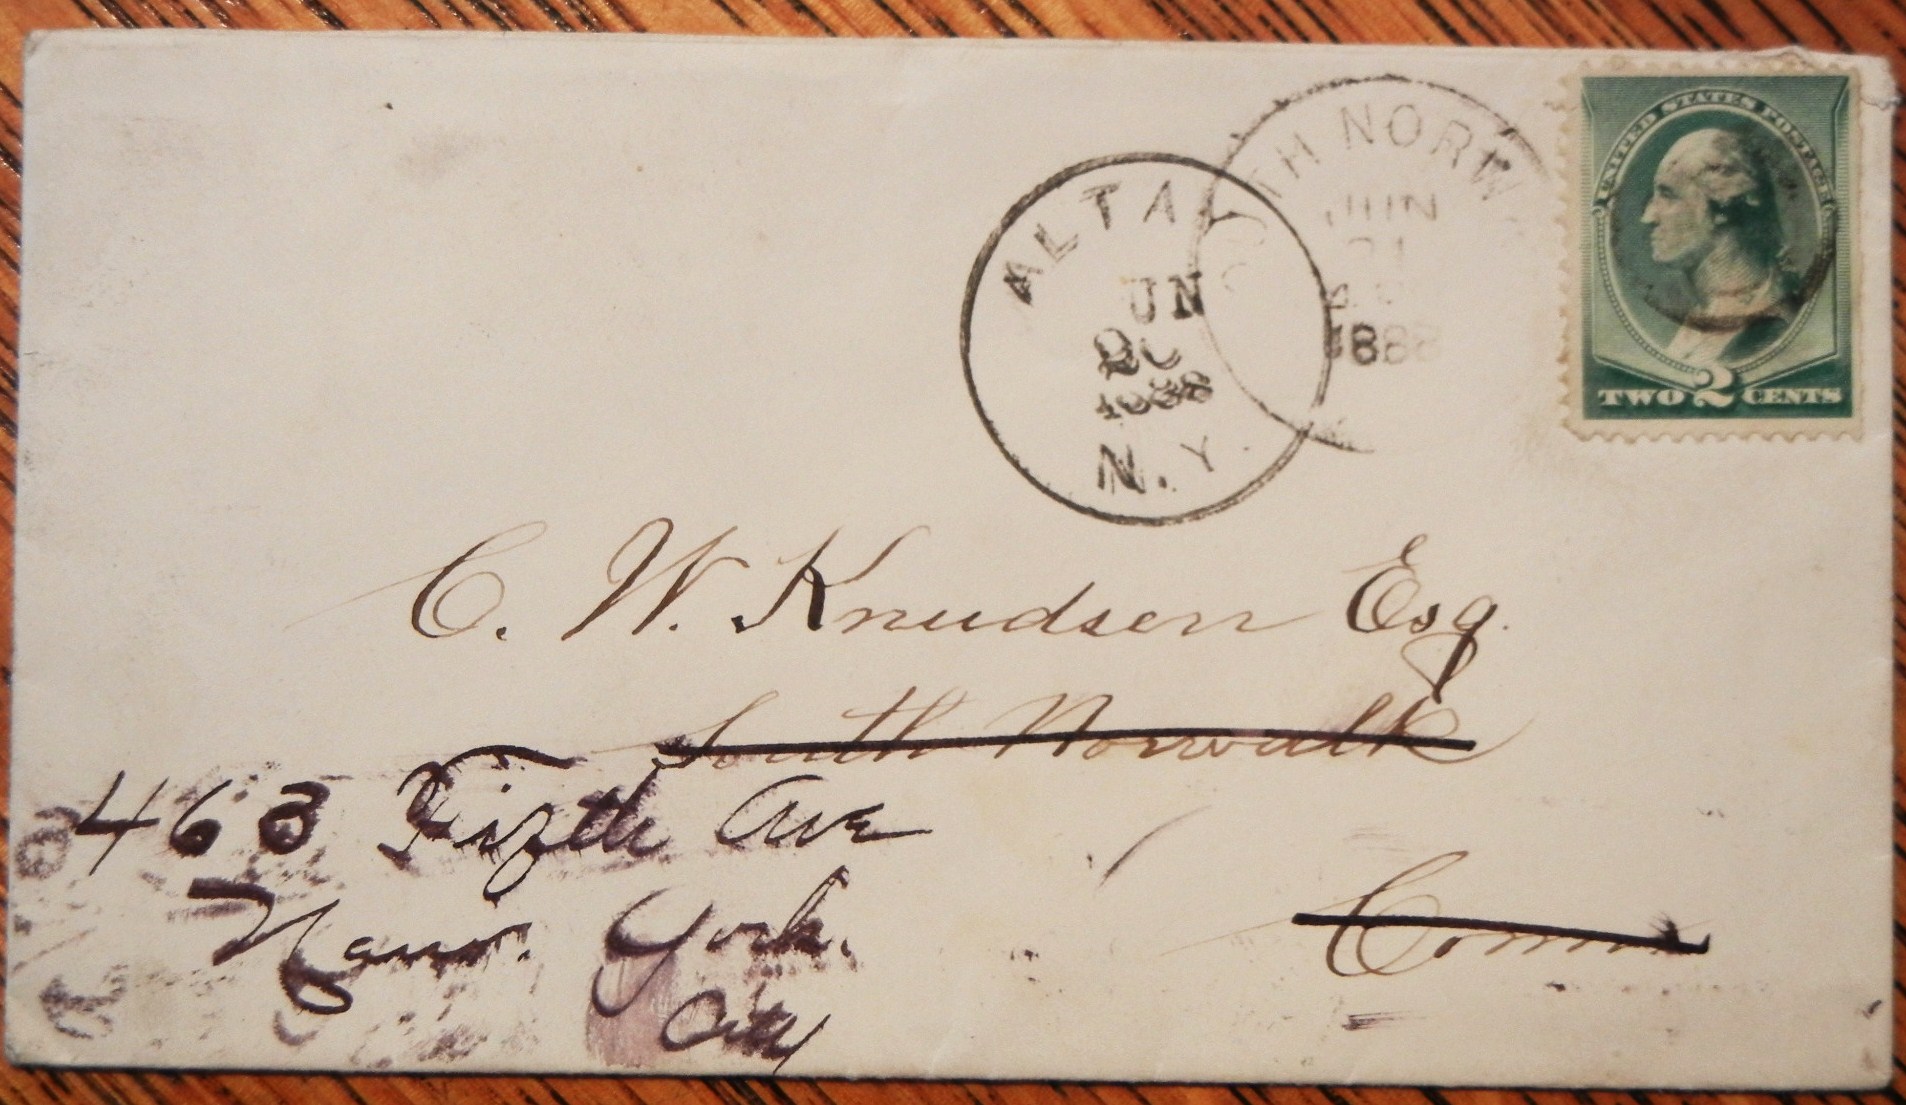 UNITED STATES POSTAGE
TWO 2 CENTS
TH NORW
JUN
21
1888
ALTA
UN
20
1888
N.Y.
C. W. Knudsen Esq.
South Norwalk
Conn
463 Fifth Ave
New York.
City